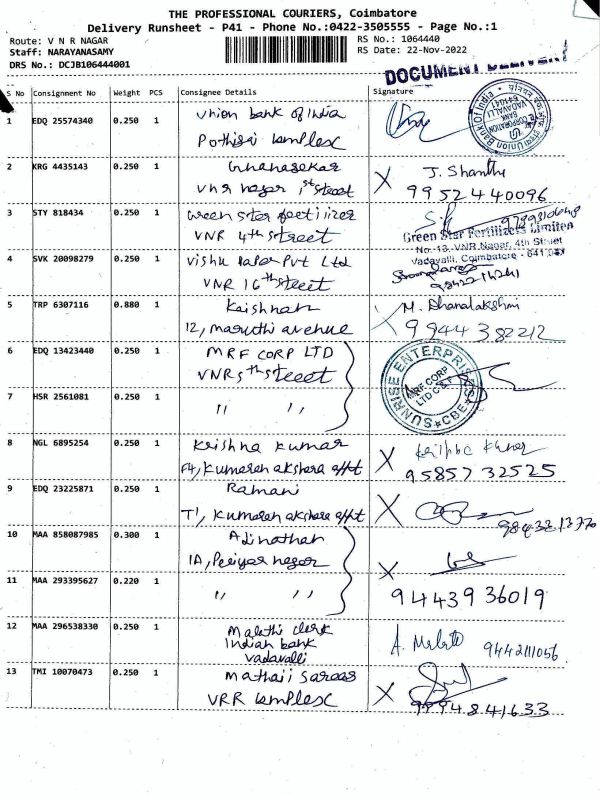 THE PROFESSIONAL COURIERS, Coimbatore
Delivery Runsheet - P41 - Phone No.:0422-3505555 - Page No.:1
Route: V N R NAGAR RS No.: 1064440
Staff: NARAYANASAMY RS Date: 22-Nov-2022
DRS No.: DCJB106444001
DOCUMENT DELIVERY
S No Consignment No Weight PCS Consignee Details Signature
1 EDQ 25574340 0.250 1 Union bank of India
Pothigai Complex
Union Bank Of India
VADAVALLI
641041
2 KRG 4435143 0.250 1 Gnanasekar J. Shanthi
VNR nagar 1st street 9952440096
3 STY 818434 0.250 1 Green star fertilizer
VNR 4th street
Green Star Fertilizers Limited
No. 13, VNR Nagar, 4th Street
Vadavalli, Coimbatore - 641 041
4 SVK 20098279 0.250 1 Vishu Paper Pvt Ltd
VNR 16th street
5 TRP 6307116 0.880 1 Krishnan M. Dhanalakshmi
12, maruthi avenue 99443 82212
6 EDQ 13423440 0.250 1 MRF CORP LTD
VNR 5th street
SUNRISE ENTERPRISES
MRF CORP
LTD C & F
CBE
7 HSR 2561081 0.250 1 " "
8 NGL 6895254 0.250 1 Krishna Kumar Krishna Kumar
F4, Kumaran akshera apt 95857 32525
9 EDQ 23225871 0.250 1 Ramani
T1, Kumaran akshera apt
10 MAA 858087985 0.300 1 Adinathan
1A, Periyar nagar
11 MAA 293395627 0.220 1 " " 94439 36019
12 MAA 296538330 0.250 1 Malathi clerk
Indian bank
vadavalli
A. Malathi 9442111056
13 TMI 10070473 0.250 1 Mathaji sarees
VRR Complex 99948 41633